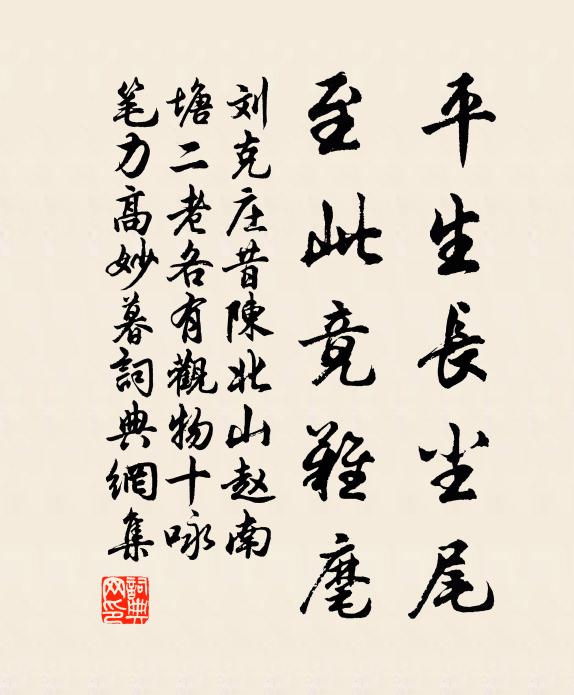 平生長尘尾
至此竟难麾
刘克庄昔陳北山赵南
塘二老各有觀物十咏
笔力高妙暮詞典網集
詞典网印